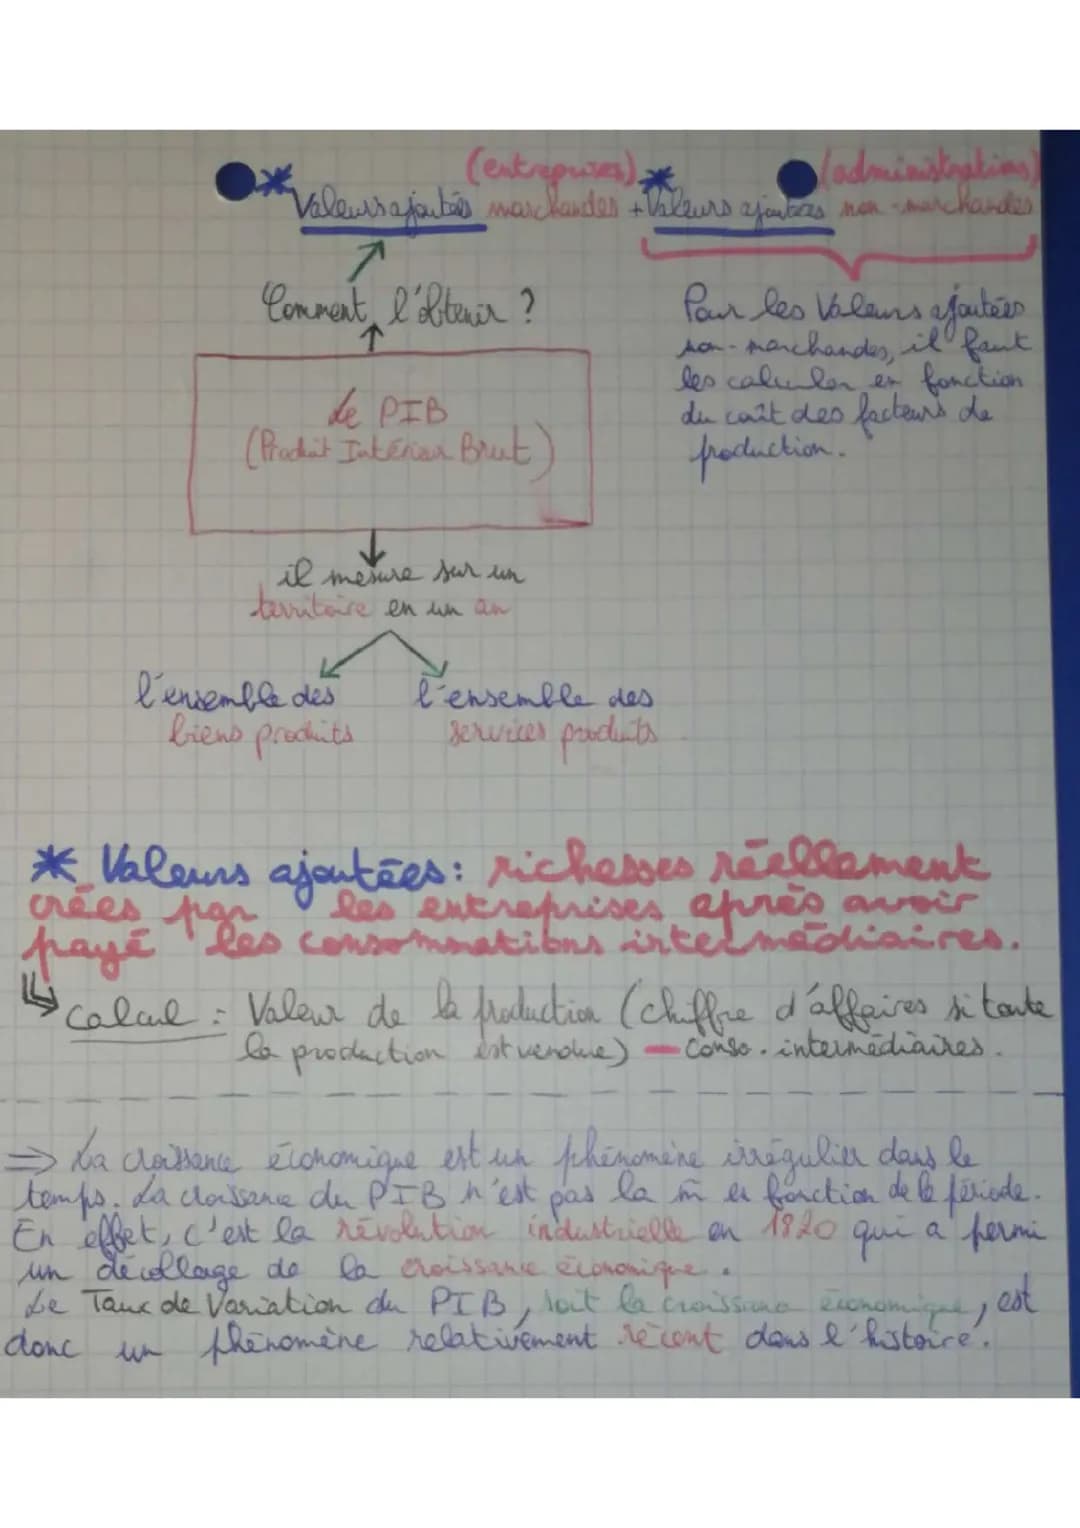 (entreprises) (administrations)
* Valeurs ajoutées marchandes + * Valeurs ajoutées non-marchandes
Comment l'obtenir ?
Pour les Valeurs ajoutées
non-marchandes, il faut
les calculer en fonction
du coût des facteurs de
production.
Le PIB
(Produit Intérieur Brut)
il mesure sur un
territoire en un an
l'ensemble des
biens produits
l'ensemble des
services produits
* Valeurs ajoutées : richesses réellement
crées par les entreprises après avoir
payé les consommations intermédiaires.
Calcul : Valeur de la production (chiffre d'affaires si toute
la production est vendue) — conso. intermédiaires.
⇒ La croissance économique est un phénomène irrégulier dans le
temps. La croissance du PIB n'est pas la m̄ en fonction de la période.
En effet, c'est la révolution industrielle en 1820 qui a permi
un décollage de la croissance économique.
Le Taux de Variation du PIB, soit la croissance économique, est
donc un phénomène relativement récent dans l'histoire.